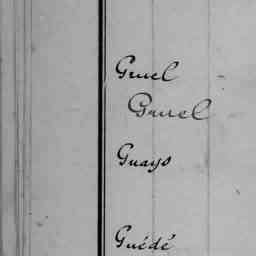 Gruel
Gruel
Guays
Guédé